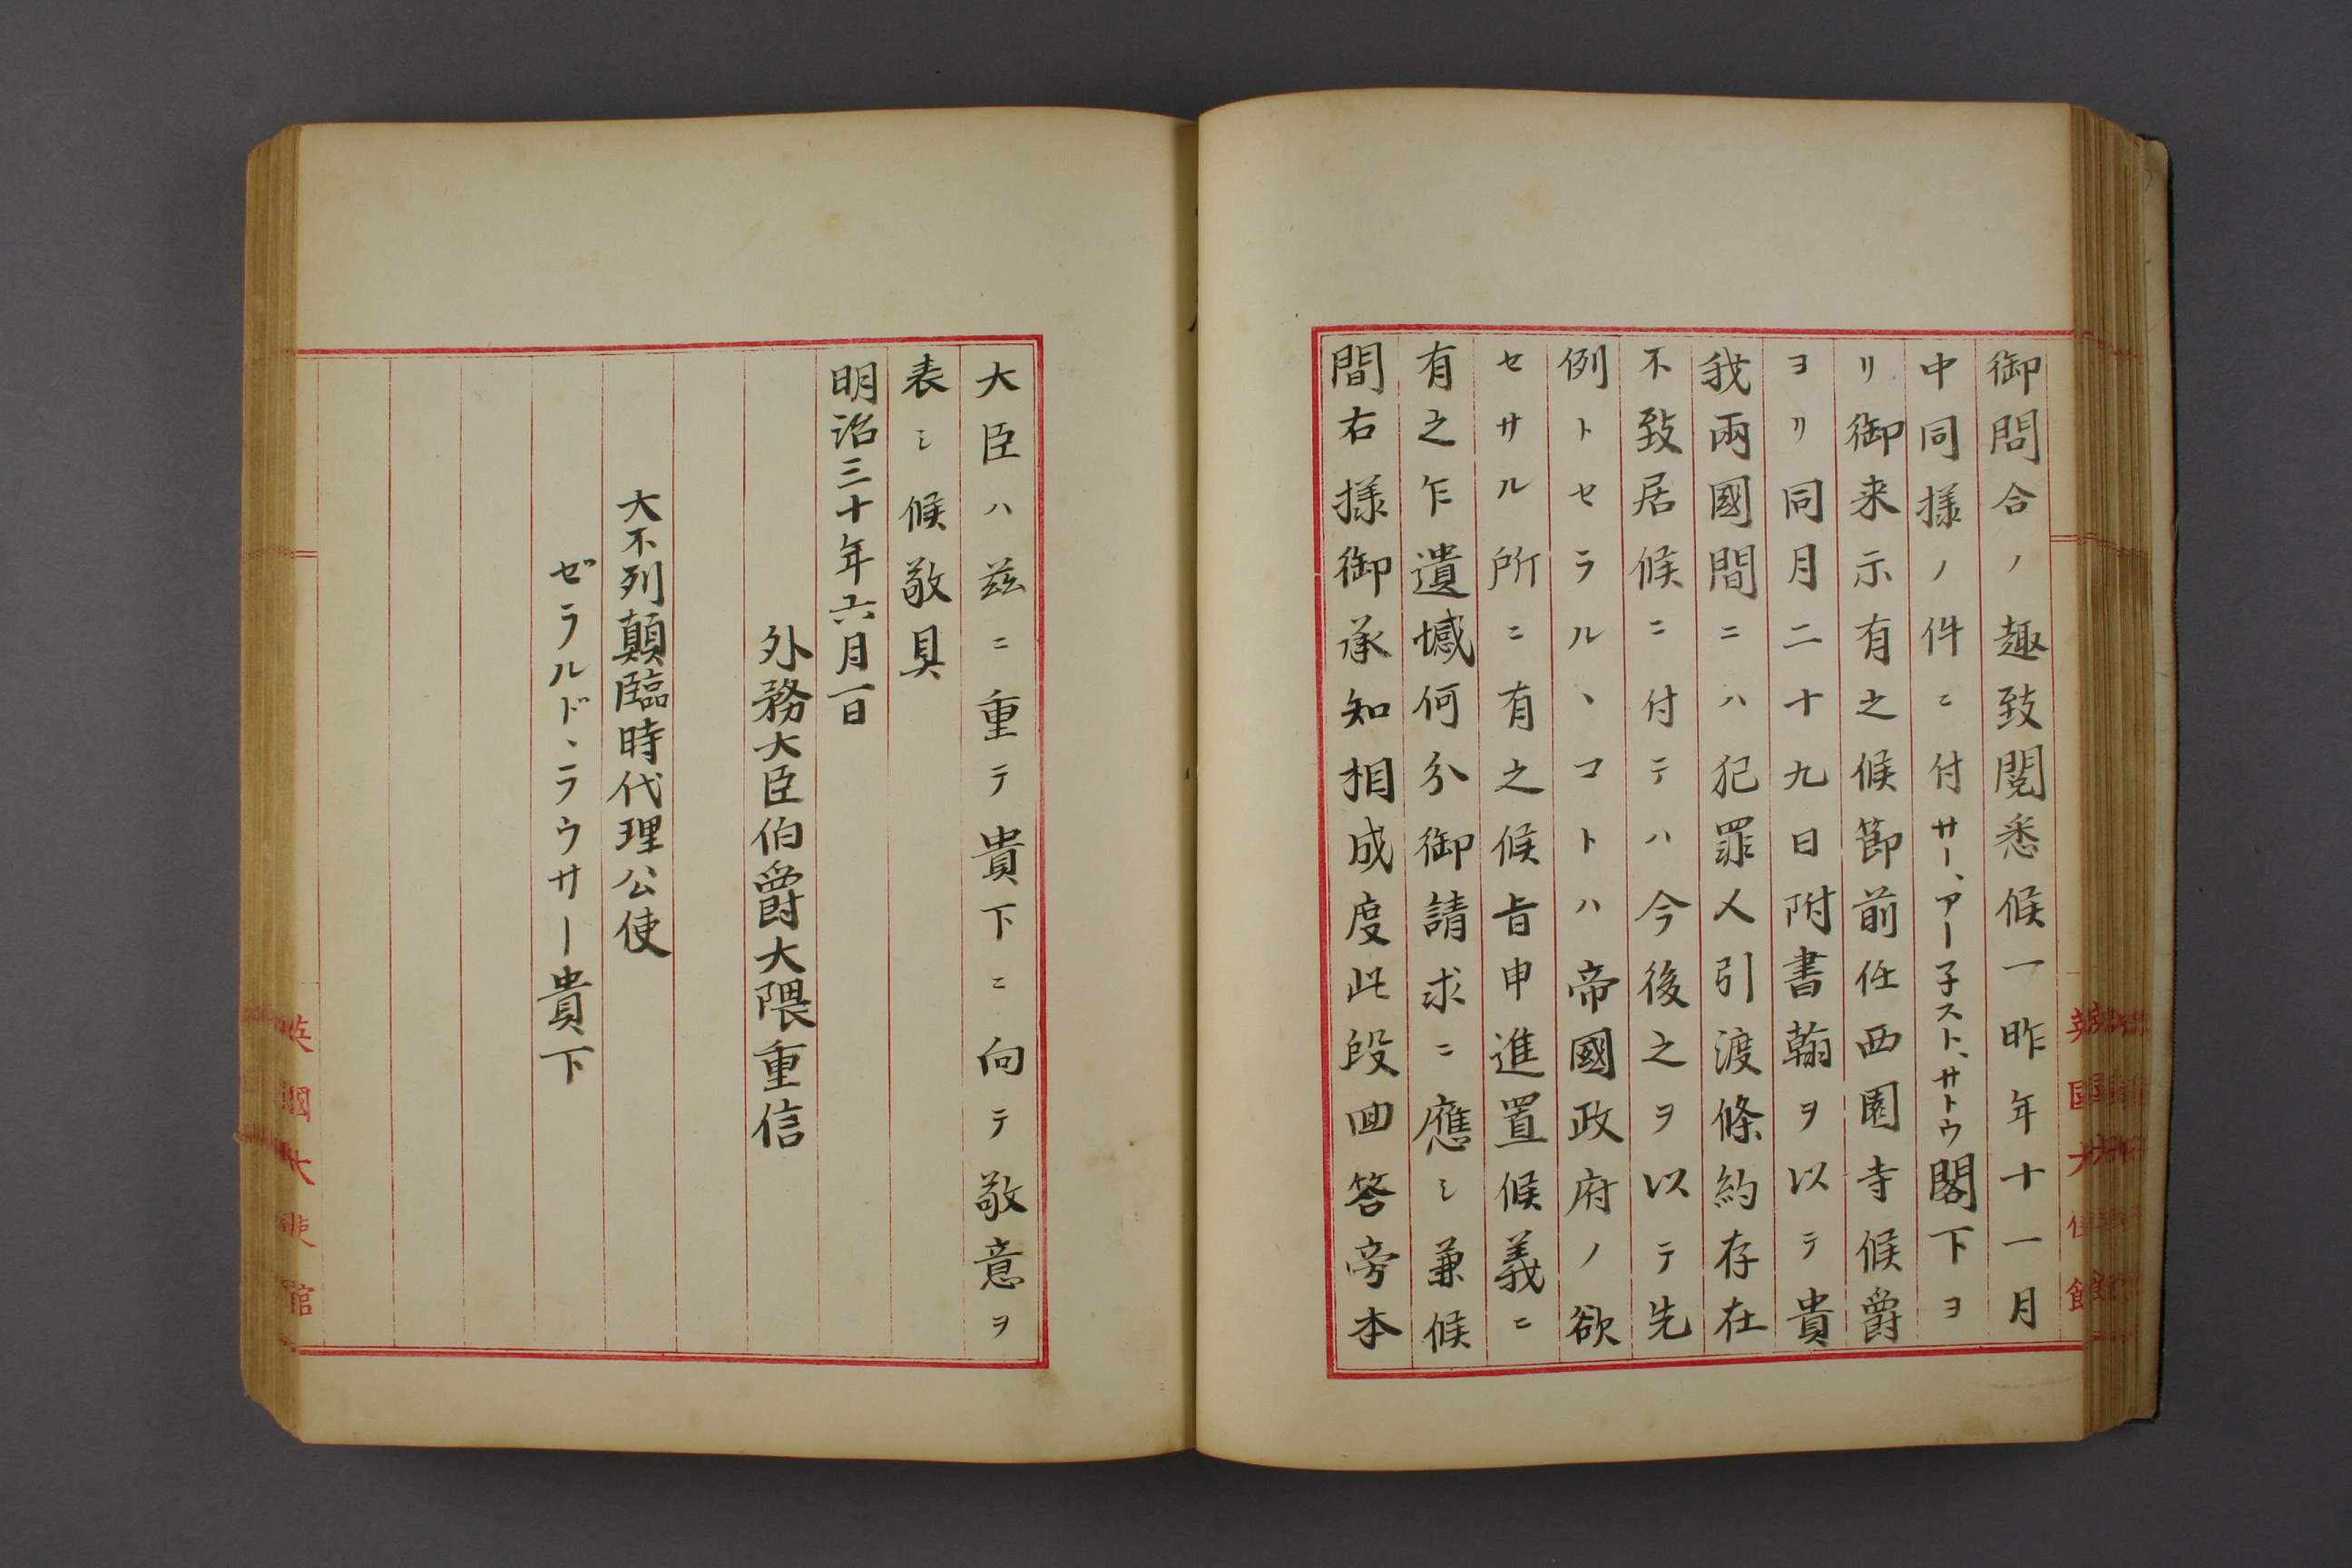 御問合ノ趣致閲悉候一昨年十一月
中同様ノ件ニ付サー、アー子スト、サトウ閣下ヨ
リ御来示有之候節前任西園寺候爵
ヨリ同月二十九日附書翰ヲ以テ貴
我兩國間ニハ犯罪人引渡條約存在
不致居候ニ付テハ今後之ヲ以テ先
例トセラルヽコトハ帝國政府ノ欲
セサル所ニ有之候旨申進置候義ニ
有之乍遺憾何分御請求ニ應シ兼候
間右様御承知相成度此段回答旁本
大臣ハ茲ニ重テ貴下ニ向テ敬意ヲ
表シ候敬具
明治三十年六月一日
外務大臣伯爵大隈重信
大不列顛臨時代理公使
ゼラルド、ラウサー貴下
英國大使館